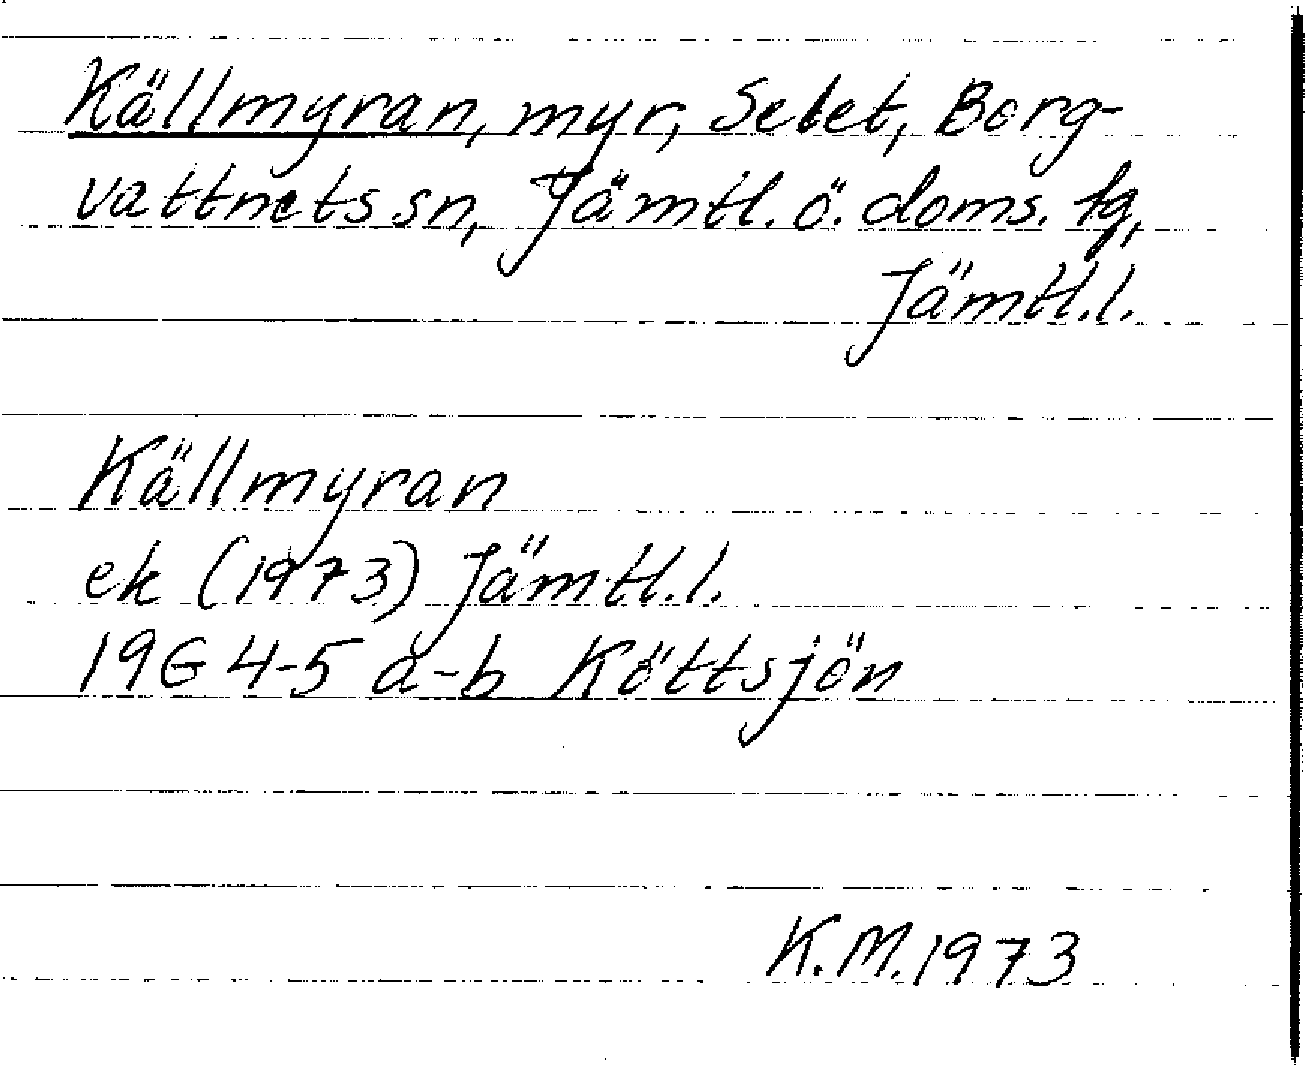 Källmyran, myr, Selet, Borg-
vattnets sn, Jämtl. ö. doms. tg,
Jämtl. l.
Källmyran
ek (1973) Jämtl. l.
19G 4-5 a-b Köttsjön
K.M. 1973